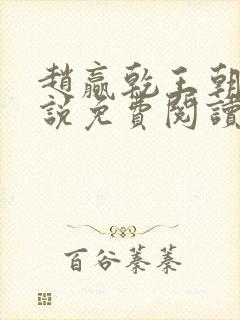 趙贏乾王朝
說免費閱讀
百谷蓁蓁